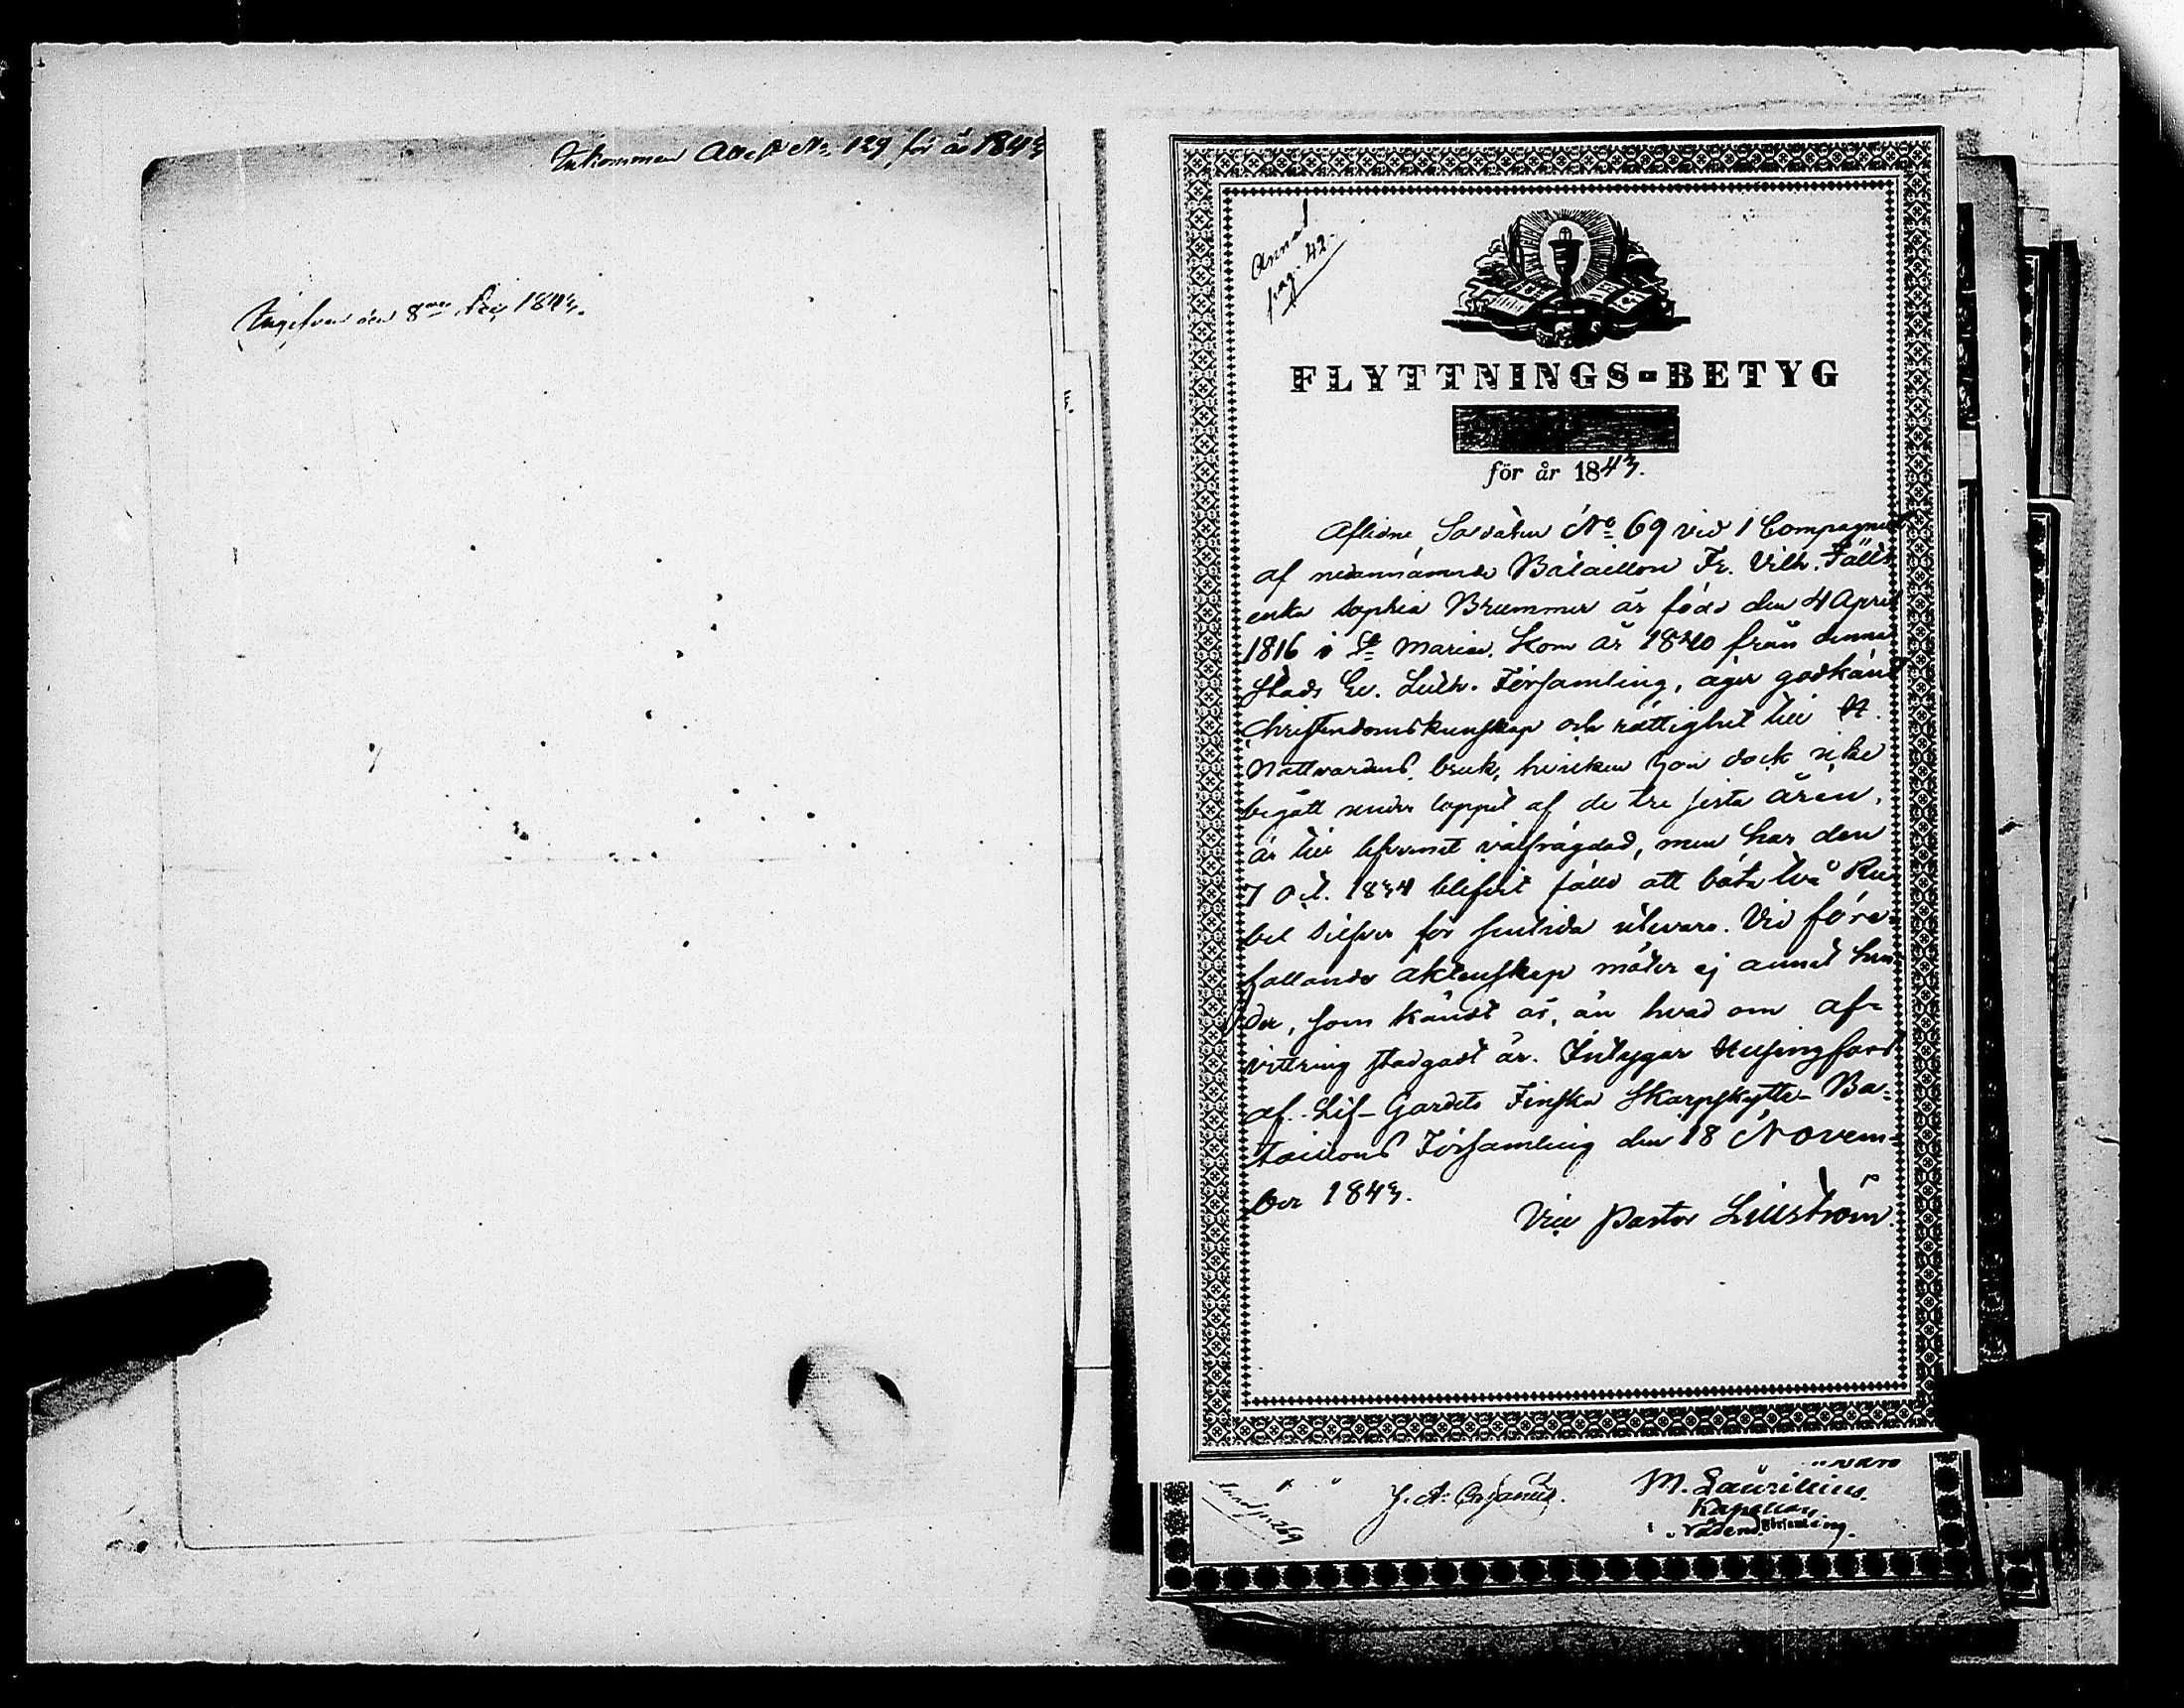 Inkommen Attest No 129 för år 1843
Ingifven den 8 Dec 1843.
Annat
pag. 42.
FLYTTNINGS-BETYG
för år 1843.
Aflidne Soldaten No 69 vid 1 Compagniet
af nedannämnde Bataillon Fr. Vilh. Fälts
enka Sophia Brummer är född den 4 April
1816 i St Marie. Kom år 1840 från denna
Stads Ev. Luth. Församling, äger godkänd
Christendomskunskap och rättighet till H.
Nattvardens bruk, hvilken hon dock icke
begått under loppet af de tre sista åren,
är till lefvernet välfrägdad, men har den
7 Oct. 1834 blifvit fälld att böta två Ru-
bel Silfver för sentida utevaro. Vid före-
fallande äktenskap möter ej annat hin-
der, som kändt är, än hvad om af-
vittring stadgadt är. Intygar Helsingfors
af Lif-Gardets Finska Skarpskytte-Ba-
taillons Församling den 18 Novem-
ber 1843.
Vice Pastor Lillström
M. Laurillius.
Kapellan
i Nådend. Församling.